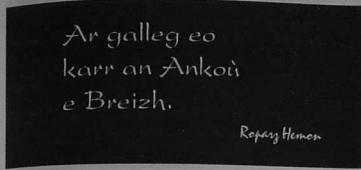 Ar galleg eo
karr an Ankoù
e Breizh.
Roparz Hemon